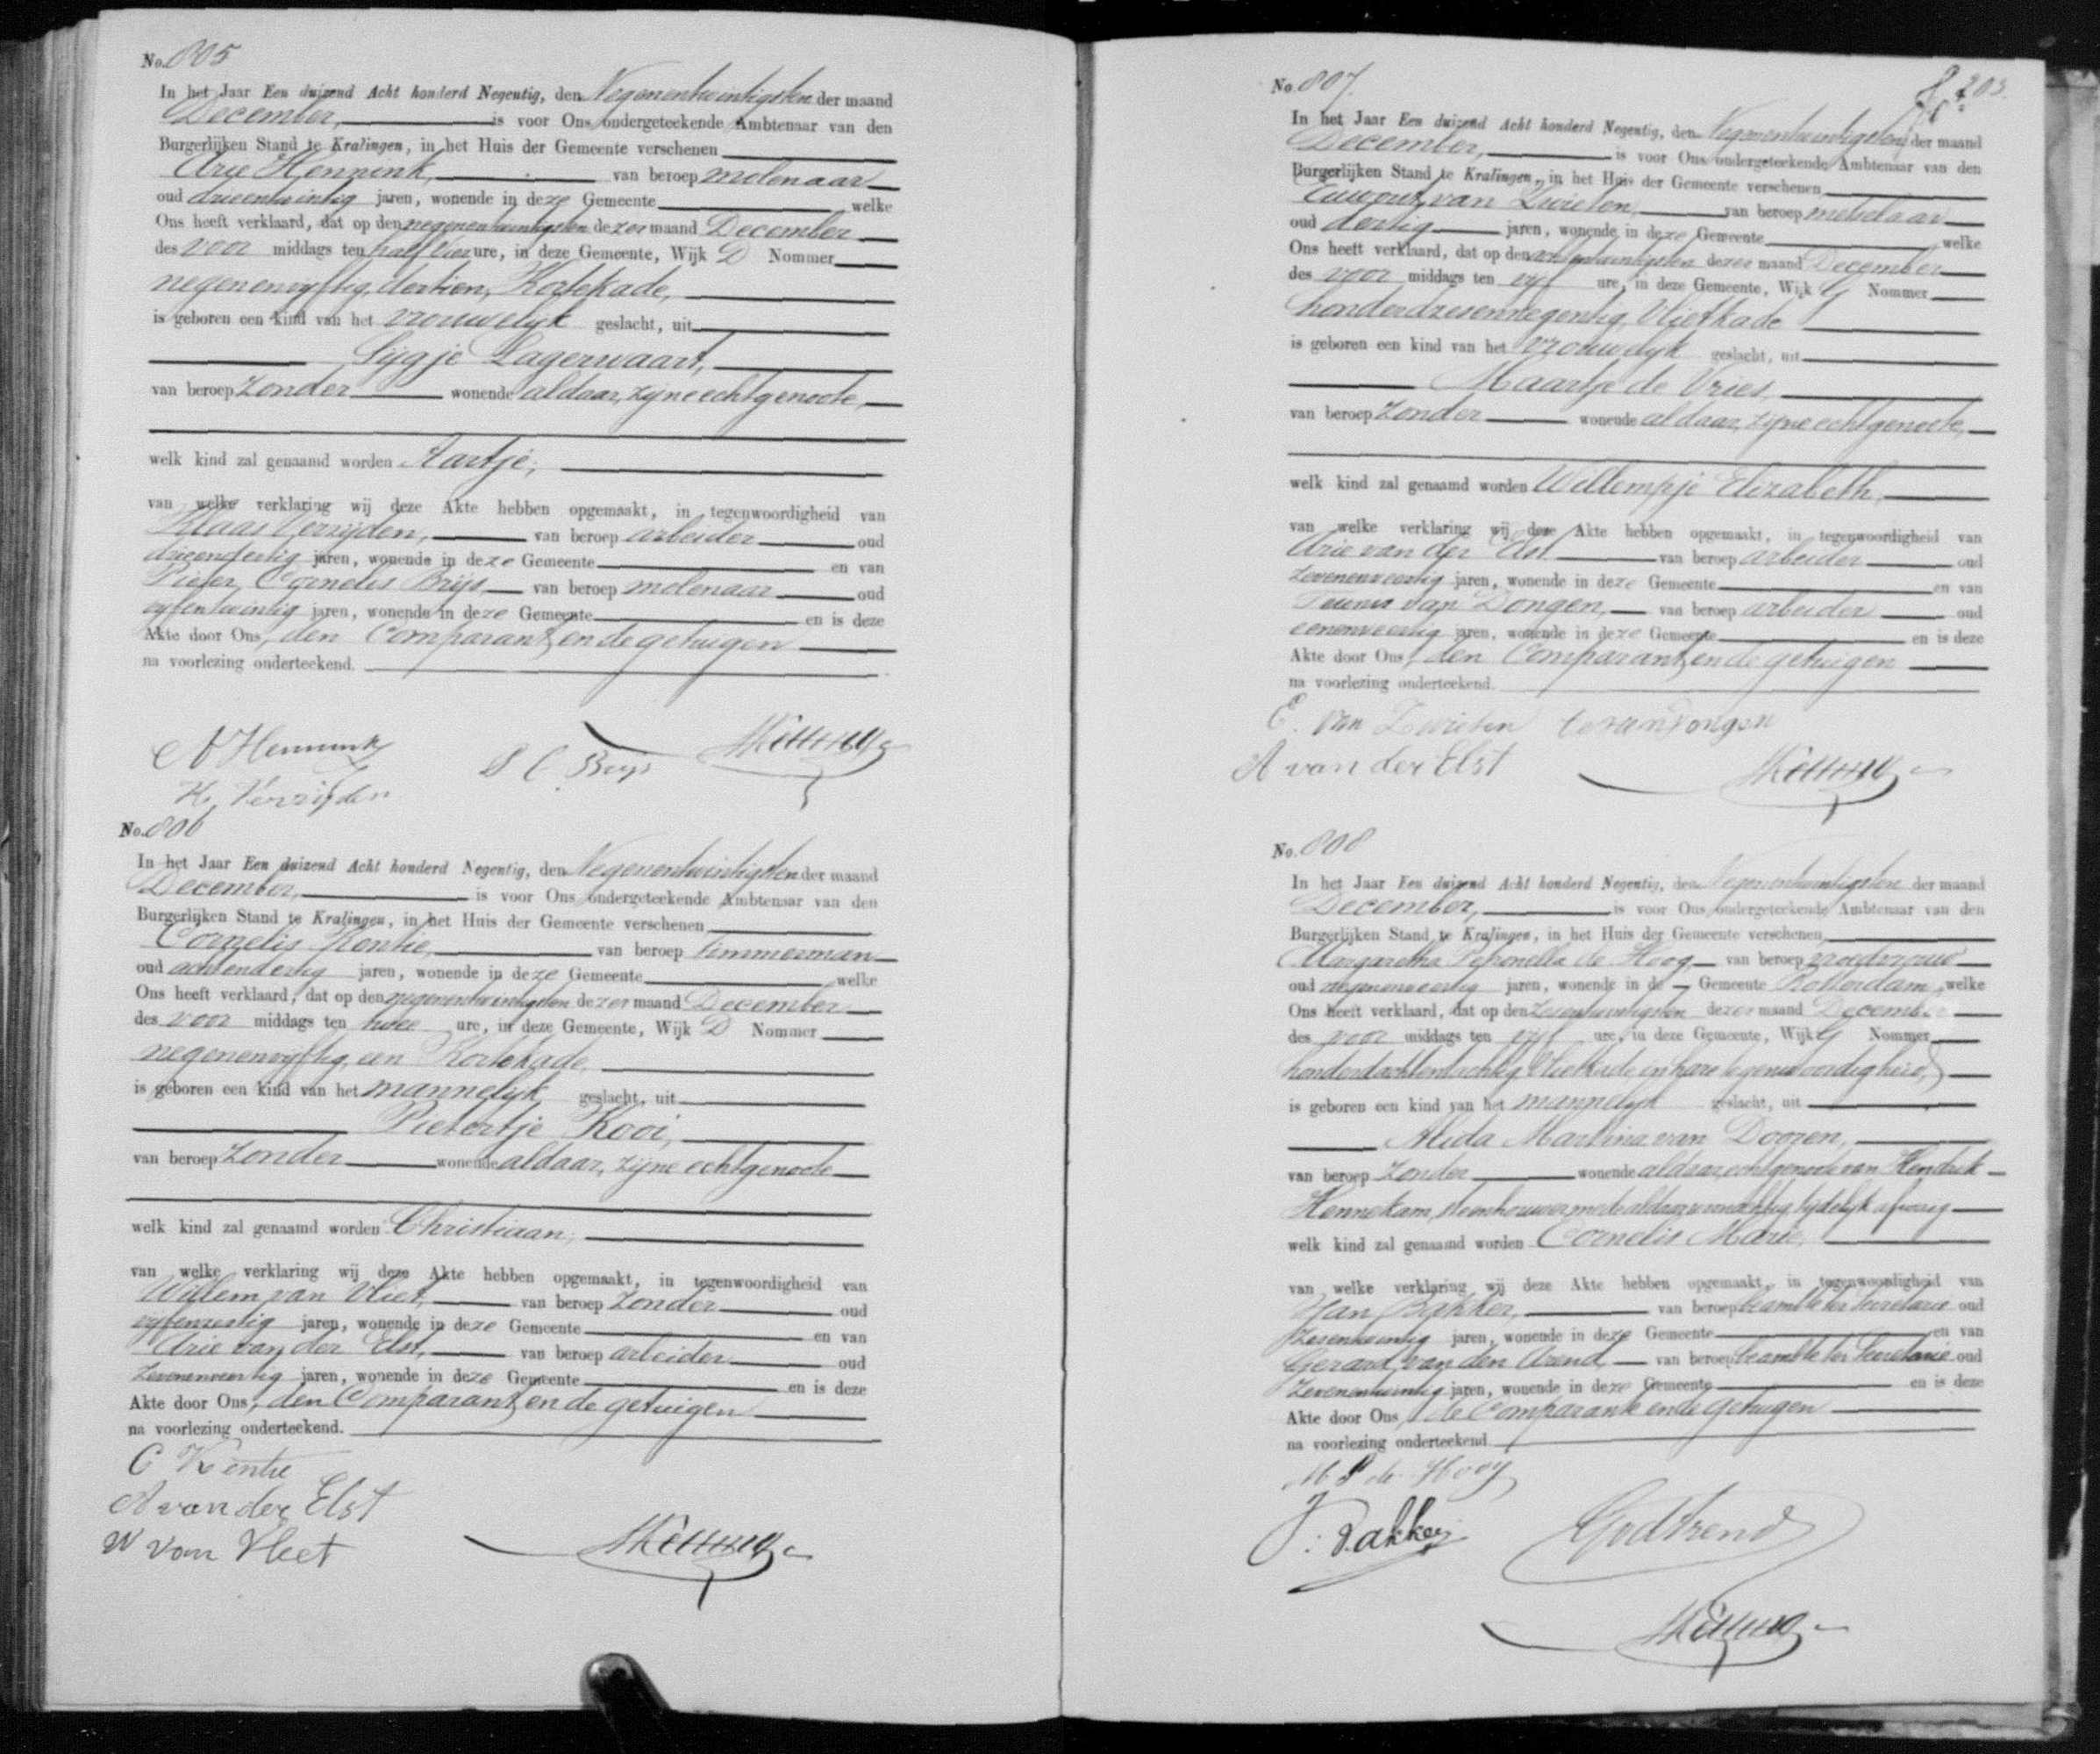 No. 805
In het Jaar Een duizend Acht honderd Negentig, den Negenentwintigsten der maand
December, is voor Ons ondergeteekende Ambtenaar van den
Burgerlijken Stand te Kralingen, in het Huis der Gemeente verschenen
Arie Hennink, van beroep molenaar
oud drieentwintig jaren, wonende in deze Gemeente welke
Ons heeft verklaard, dat op den negenentwintigsten dezer maand December
des voor middags ten half vier ure, in deze Gemeente, Wijk D Nommer
negenenvyftig, dertien, Kortekade,
is geboren een kind van het vrouwelyk geslacht, uit
Sijgje Lagerwaart,
van beroep Zonder wonende aldaar, zyne echtgenoote,
welk kind zal genaamd worden Aartje,
van welke verklaring wij deze Akte hebben opgemaakt, in tegenwoordigheid van
Klaas Verzijden, van beroep arbeider oud
drieendertig jaren, wonende in deze Gemeente en van
Pieter Cornelis Brijs, van beroep molenaar oud
vyfentwintig jaren, wonende in deze Gemeente en is deze
Akte door Ons, den Comparant, en de getuigen
na voorlezing onderteekend.
A Hennink
P C Brijs
K. Verzijden
No. 806
In het Jaar Een duizend Acht honderd Negentig, den Negenentwintigsten der maand
December, is voor Ons ondergeteekende Ambtenaar van den
Burgerlijken Stand te Kralingen, in het Huis der Gemeente verschenen
Cornelis Kentie, van beroep Timmerman
oud achtendertig jaren, wonende in deze Gemeente welke
Ons heeft verklaard, dat op den negenentwintigsten dezer maand December
des voor middags ten twee ure, in deze Gemeente, Wijk D Nommer
negenenvyftig, een Kortekade,
is geboren een kind van het mannelyk geslacht, uit
Pietertje Kooi,
van beroep Zonder wonende aldaar, zijne echtgenoote
welk kind zal genaamd worden Christiaan,
van welke verklaring wij deze Akte hebben opgemaakt, in tegenwoordigheid van
Willem van Vliet, van beroep Zonder oud
vyfenzestig jaren, wonende in deze Gemeente en van
Arie van der Elst, van beroep arbeider oud
Zevenenveertig jaren, wonende in deze Gemeente en is deze
Akte door Ons, den Comparant, en de getuigen
na voorlezing onderteekend.
C Kentie
A van der Elst
W van Vliet
203.
No. 807.
In het Jaar Een duizend Acht honderd Negentig, den Negenentwintigsten der maand
December, is voor Ons ondergeteekende Ambtenaar van den
Burgerlijken Stand te Kralingen, in het Huis der Gemeente verschenen
Euwout van Zwieten, van beroep metselaar
oud dertig jaren, wonende in deze Gemeente welke
Ons heeft verklaard, dat op den achtentwintigsten dezer maand December
des voor middags ten vyf ure, in deze Gemeente, Wijk G Nommer
honderdzesennegentig, Vlietkade
is geboren een kind van het vrouwelyk geslacht, uit
Maartje de Vries,
van beroep Zonder wonende aldaar, zyne echtgenoote,
welk kind zal genaamd worden Willempje Elizabeth,
van welke verklaring wij deze Akte hebben opgemaakt, in tegenwoordigheid van
Arie van der Elst van beroep arbeider oud
Zevenenveertig jaren, wonende in deze Gemeente en van
Teunis van Dongen, van beroep arbeider oud
eenenveertig jaren, wonende in deze Gemeente en is deze
Akte door Ons, den Comparant, en de getuigen
na voorlezing onderteekend.
E. van Zwieten
A van der Elst
No. 808
In het Jaar Een duizend Acht honderd Negentig, den Negenentwintigsten der maand
December, is voor Ons ondergeteekende Ambtenaar van den
Burgerlijken Stand te Kralingen, in het Huis der Gemeente verschenen
Margaretha Petronella de Hoog van beroep vroedvrouw
oud negenenveertig jaren, wonende in de Gemeente Rotterdam, welke
Ons heeft verklaard, dat op den Zesentwintigsten dezer maand December
des voor middags ten vyf ure, in deze Gemeente, Wijk G Nommer
honderdachtentachtig, Vlietkade, in hare tegenwoordigheid,
is geboren een kind van het mannelyk geslacht, uit
Alida Martina van Doozen,
van beroep Zonder wonende aldaar, echtgenoote van Hendrik
Hennekam, steenhouwer, mede aldaar woonachtig, tydelyk afwezig
welk kind zal genaamd worden Cornelis Marie,
van welke verklaring wij deze Akte hebben opgemaakt, in tegenwoordigheid van
Jan Bakker, van beroep beambte ter Secretarie oud
Zesentwintig jaren, wonende in deze Gemeente en van
Gerard van den Arend van beroep beambte ter Secretarie oud
Zevenentwintig jaren, wonende in deze Gemeente en is deze
Akte door Ons, de Comparante en de getuigen
na voorlezing onderteekend
M P de Hoog
J. Bakker
GvdArend